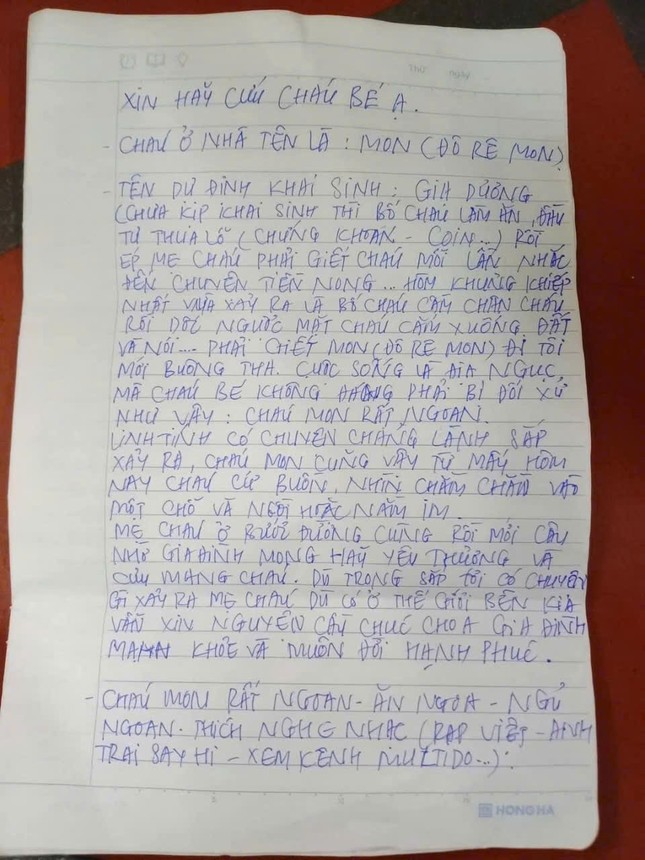 XIN HÃY CỨU CHÁU BÉ Ạ.
- CHÁU Ở NHÀ TÊN LÀ : MON (ĐÔ RÊ MON)
- TÊN DỰ ĐỊNH KHAI SINH : GIA DƯƠNG
(CHƯA KỊP KHAI SINH THÌ BỐ CHÁU LÀM ĂN, ĐẦU
TƯ THUA LỖ (CHỨNG KHOÁN - COIN...) RỒI
ÉP MẸ CHÁU PHẢI GIẾT CHÁU MỖI LẦN NHẮC
ĐẾN CHUYỆN TIỀN NONG ... HÔM KHỦNG KHIẾP
NHẤT VỪA XẢY RA LÀ BỐ CHÁU CẦM CHÂN CHÁU
RỒI DỐC NGƯỢC MẶT CHÁU CẮM XUỐNG ĐẤT
VÀ NÓI .... PHẢI CHẾT MON (ĐÔ RÊ MON) ĐI TÔI
MỚI BUÔNG THA. CUỘC SỐNG LÀ ĐỊA NGỤC,
MÀ CHÁU BÉ KHÔNG ĐÁNG PHẢI BỊ ĐỐI XỬ
NHƯ VẬY : CHÁU MON RẤT NGOAN.
LINH TÍNH CÓ CHUYỆN CHẲNG LÀNH SẮP
XẢY RA, CHÁU MON CŨNG VẬY TỪ MẤY HÔM
NAY CHÁU CỨ BUỒN, NHÌN CHẰM CHẰM VÀO
MỘT CHỖ VÀ NGỒI HOẶC NẰM IM.
MẸ CHÁU Ở BƯỚC ĐƯỜNG CÙNG RỒI MỚI CẦU
NHỜ GIA ĐÌNH MONG HÃY YÊU THƯƠNG VÀ
CƯU MANG CHÁU. DÙ TRONG SẮP TỚI CÓ CHUYỆN
GÌ XẢY RA MẸ CHÁU DÙ CÓ Ở THẾ GIỚI BÊN KIA
VẪN XIN NGUYỆN CẦU CHÚC CHO A GIA ĐÌNH
MẠNH KHỎE VÀ MUÔN ĐỜI HẠNH PHÚC.
- CHÁU MON RẤT NGOAN - ĂN NGOA - NGỦ
NGOAN. THÍCH NGHE NHẠC (RAP VIỆT - ANH
TRAI SAY HI - XEM KÊNH MULTIDO...).
HONG HA